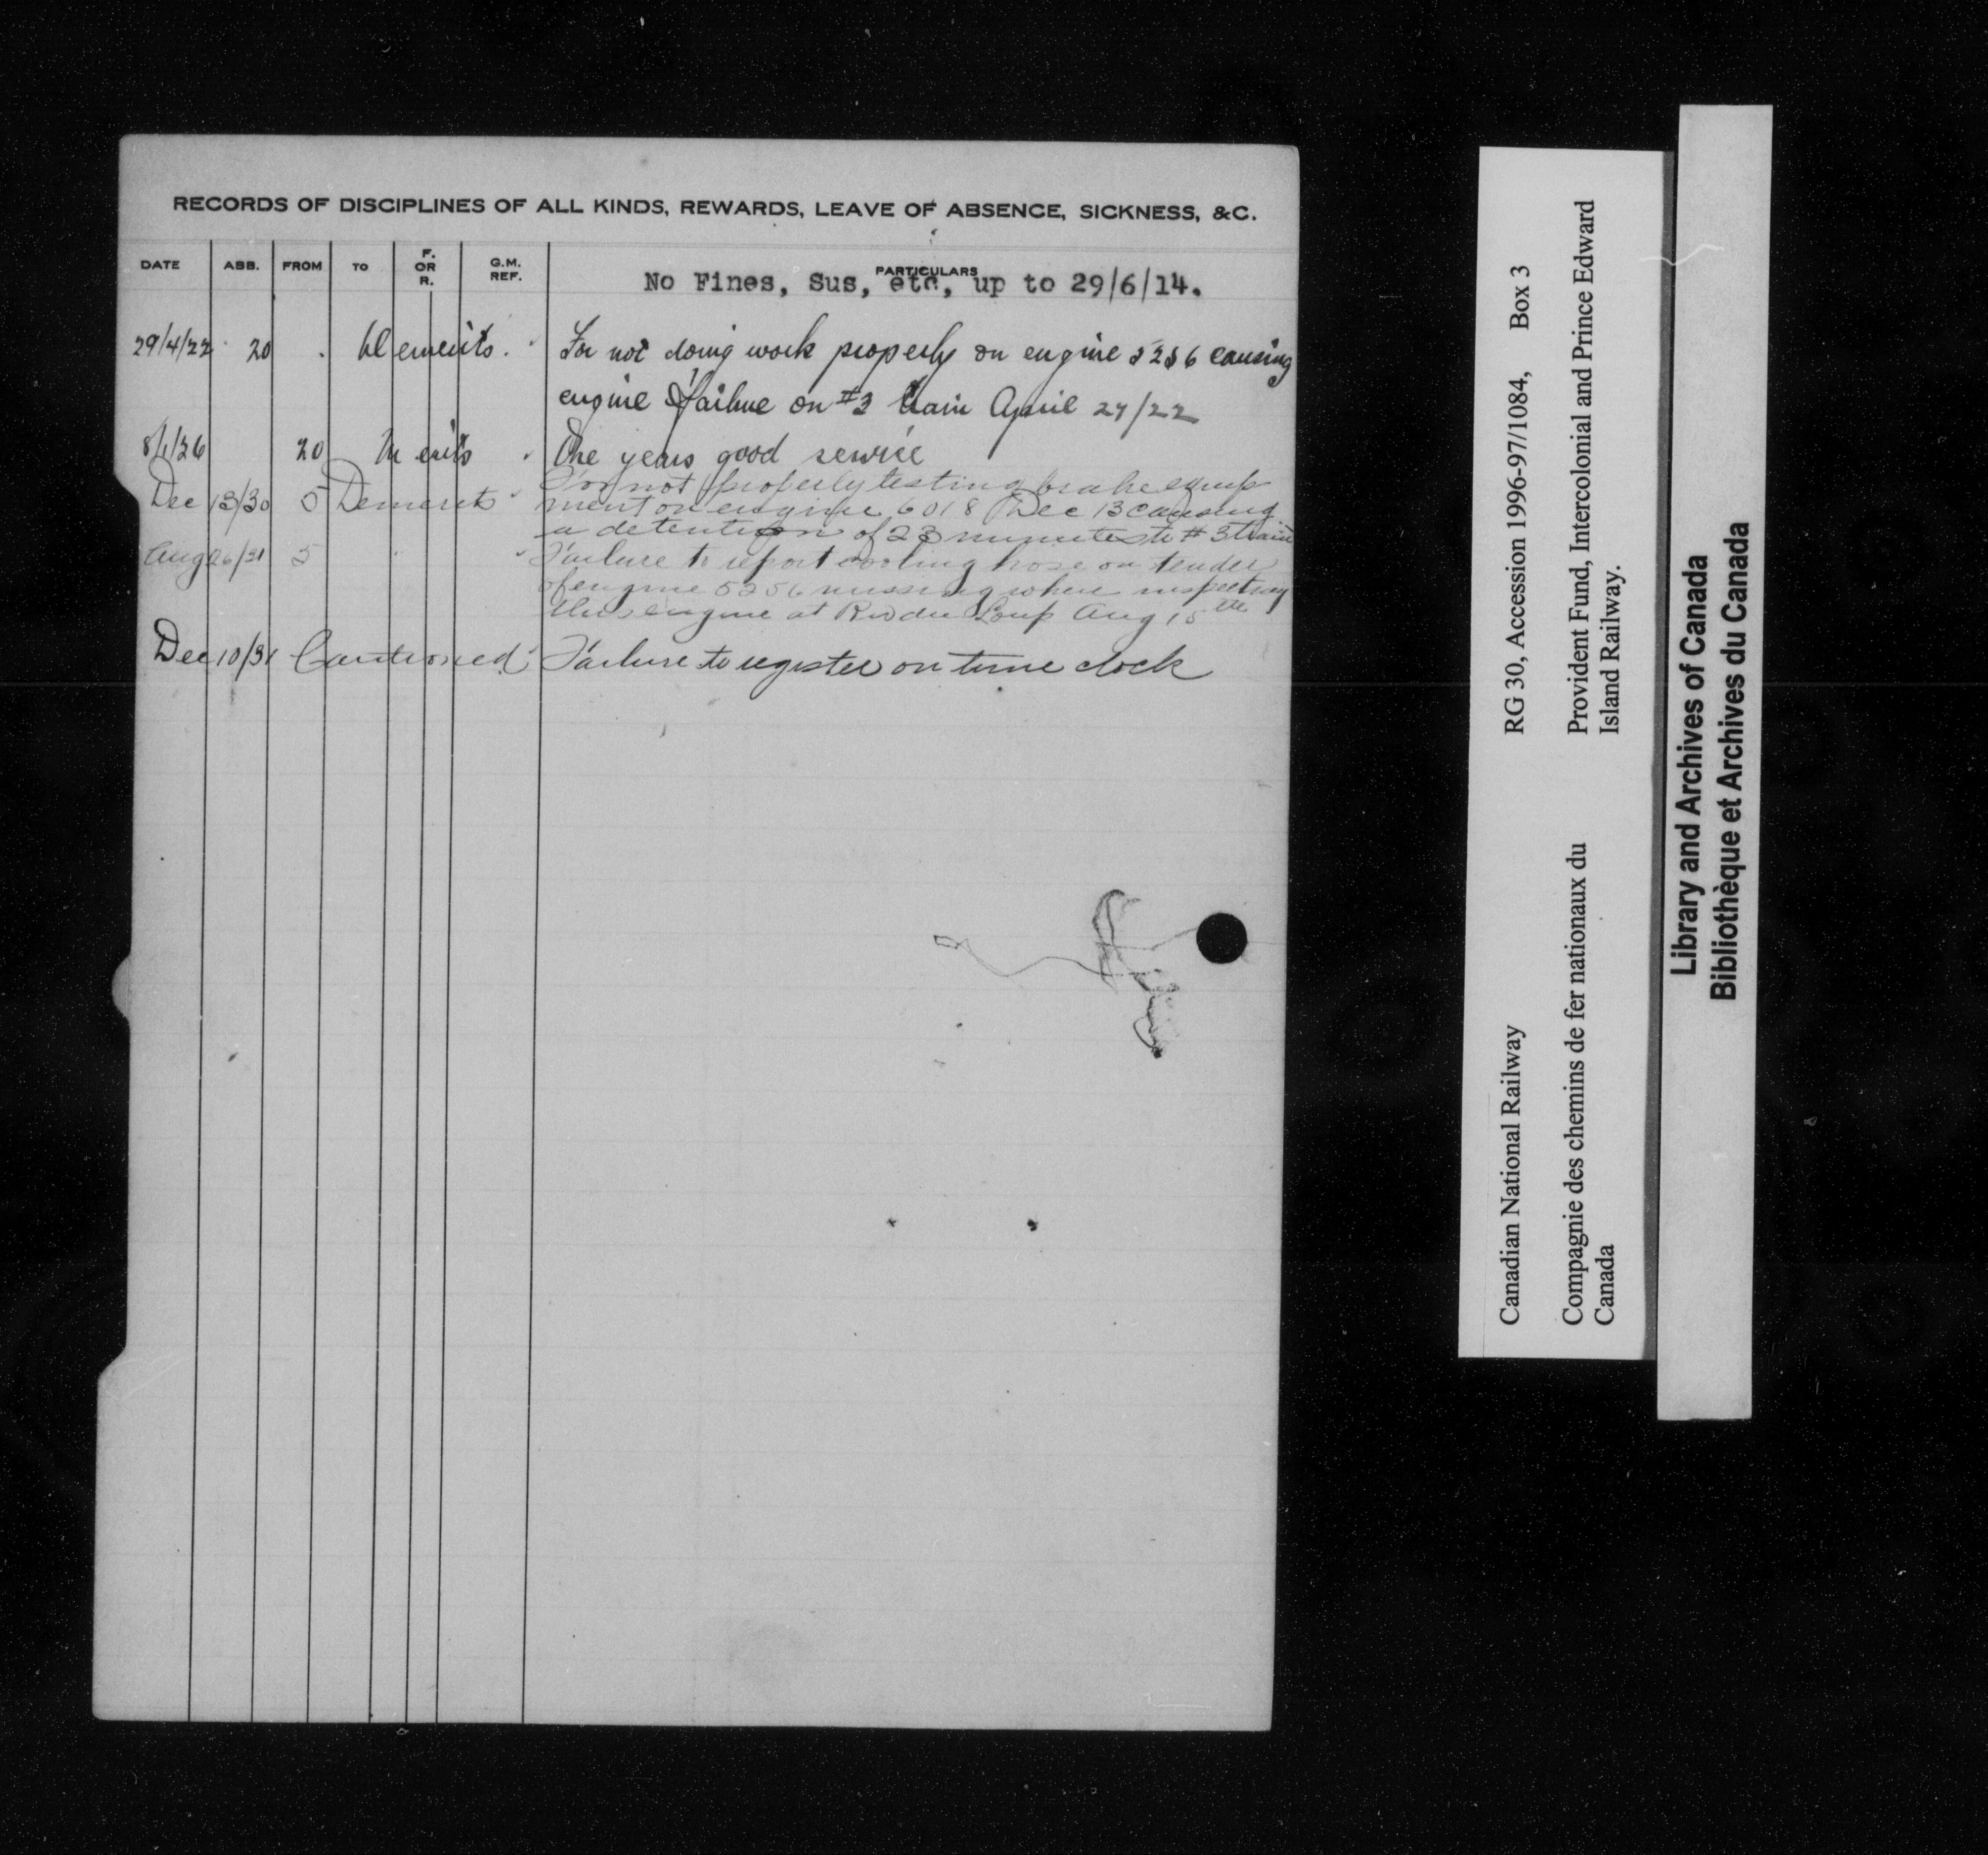 RECORDS OF DISCIPLINES OF ALL KINDS, REWARDS, LEAVE OF ABSENCE, SICKNESS, &C.
DATE ABB. FROM TO F. OR R. G.M. REF. PARTICULARS
No Fines, Sus, etc, up to 29/6/14.
29/4/22 20 Demerits. For not doing work properly on engine 5256 causing
engine failure on #3 train April 27/22
8/1/26 20 Merits One years good service
For not properly testing brake equip
Dec 13/30 5 Demerits ment on engine 6018 Dec 13 causing
a detention of 23 minutes to #3 train
Aug 26/31 5 " " Failure to report cooling hose on tender
of engine 5256 missing when inspecting
this engine at Riv du Loup Aug 15th
Dec 10/31 Cautioned Failure to register on time clock
Canadian National Railway RG 30, Accession 1996-97/1084, Box 3
Compagnie des chemins de fer nationaux du Canada
Provident Fund, Intercolonial and Prince Edward
Island Railway.
Library and Archives of Canada
Bibliothèque et Archives du Canada